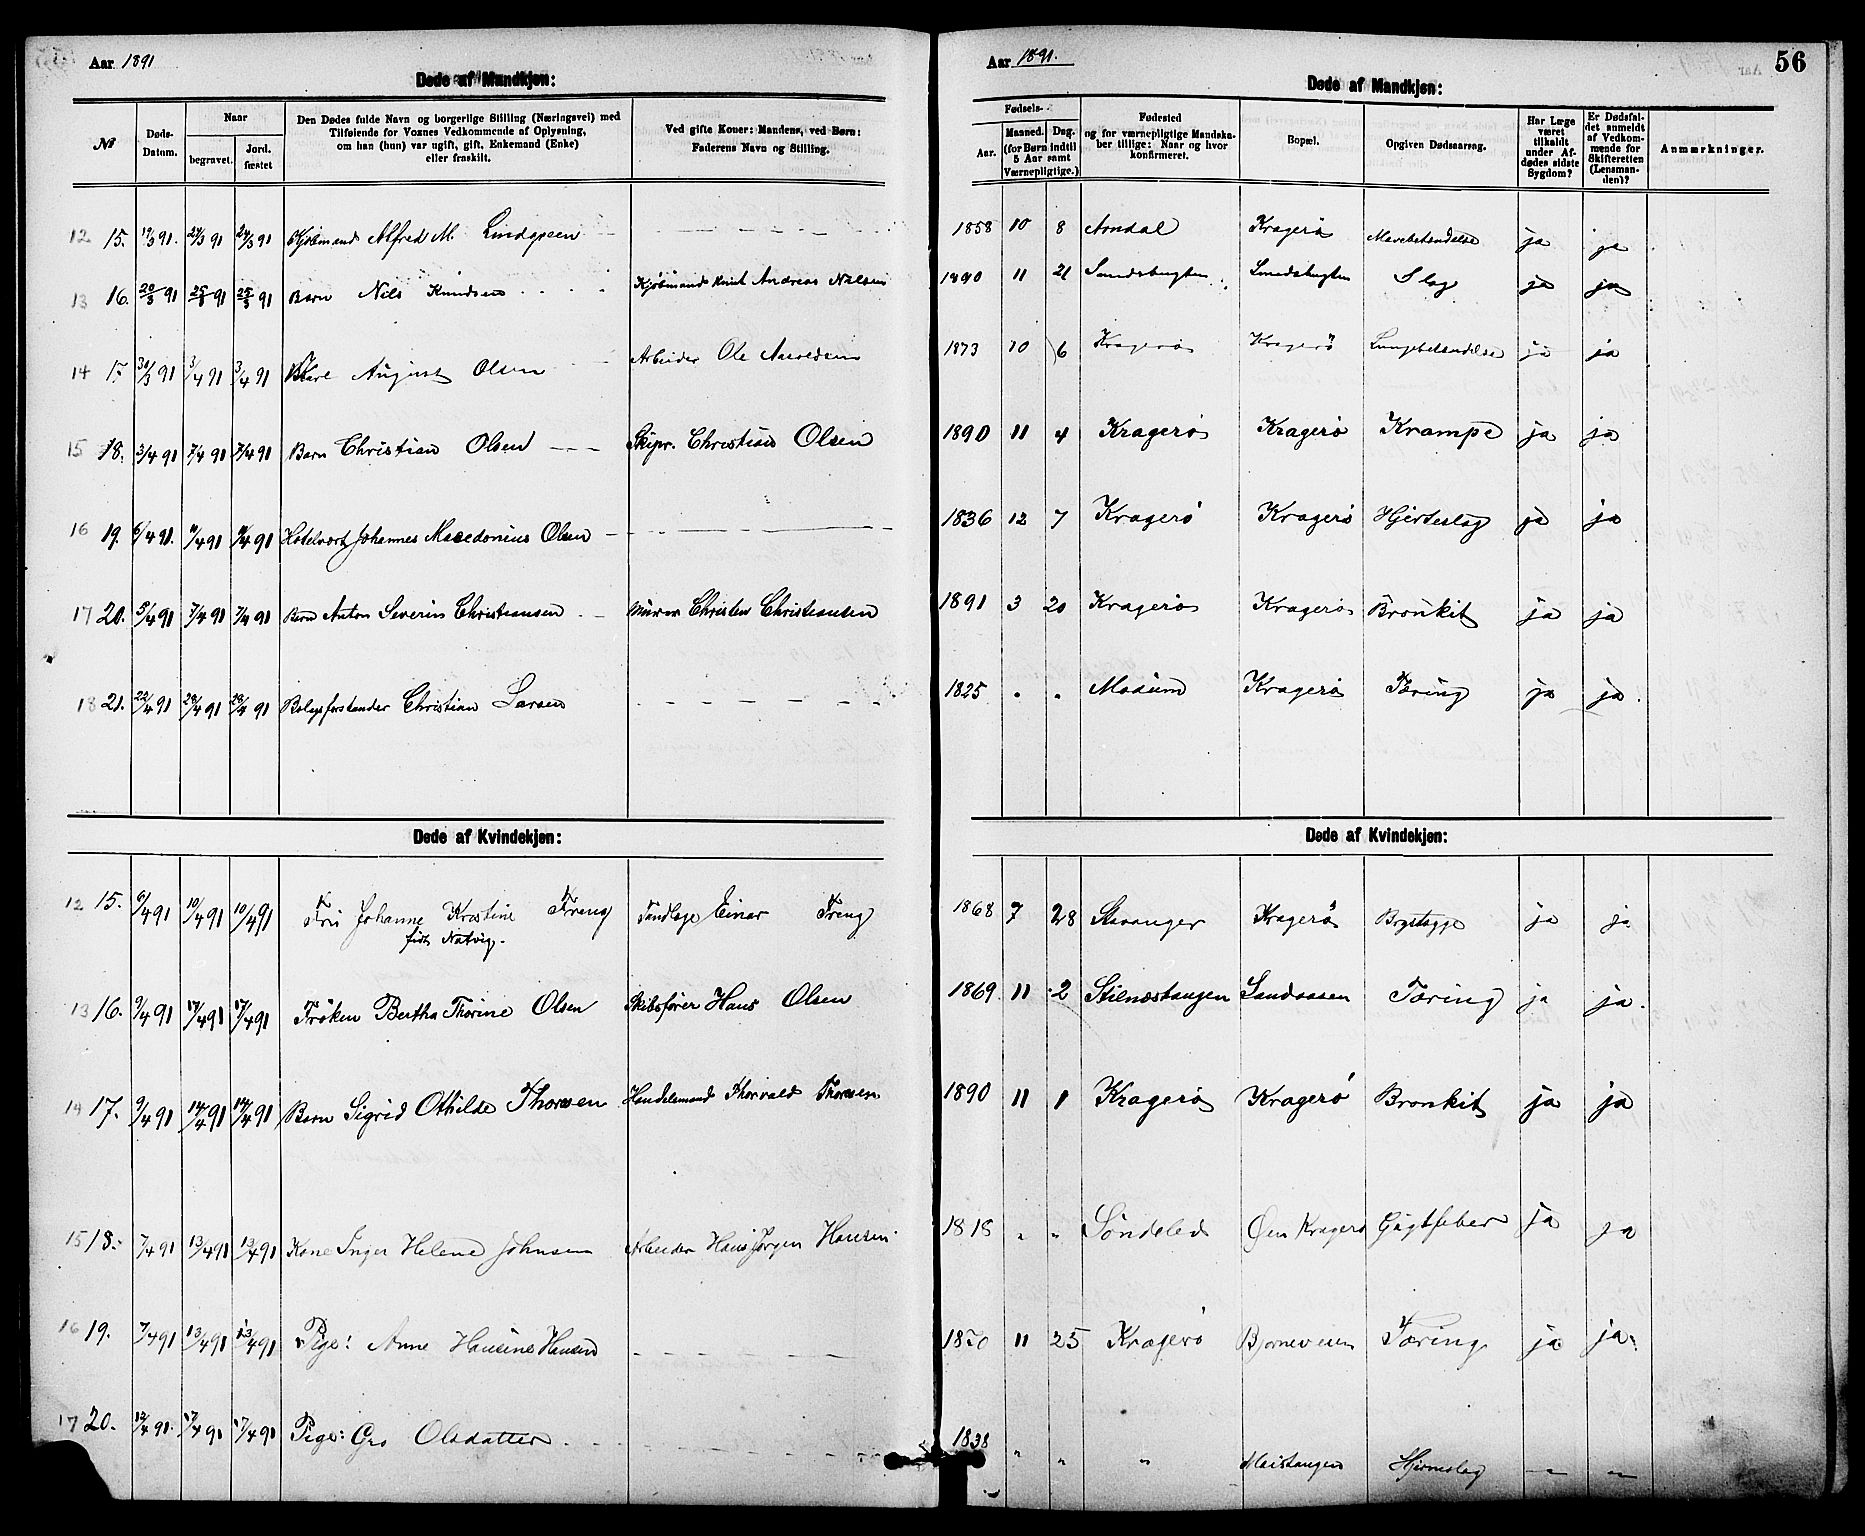 Aar 1891
Døde af Mandkjøn:
№
Døds-Datum.
Naar
begravet.
Jord-fæstet
Den Dødes fulde Navn og borgerlige Stilling (Næringsvei) med
Tilføiende for Voxnes Vedkommende af Oplysning,
om han (hun) var ugift, gift, Enkemand (Enke)
eller fraskilt.
Ved gifte Koner: Mandens, ved Børn:
Faderens Navn og Stilling.
12 15. 19/3 91. 24/3 91 24/3 91 Kjøbmand Alfred M. Lindgreen
13 16. 20/3 91 25/3 91 25/3 91 Barn Nils Knudsen Kjøbmand Knut Andreas Nilsen
14 17. 30/3 91 3/4 91 3/4 91 August Olsen Arbeider Ole
15 18. 3/4 91 7/4 91 7/4 91 Barn Christian Olsen Skipr. Christian Olsen
16 19. 6/4 91. 11/4 91 11/4 91 Hotelvert Johannes Macedonius Olsen
17 20. 5/4 91 7/4 91 7/4 91 Barn Anton Severin Christiansen Murer Christen Christiansen
18 21. 22/4 91 28/4 91 28/4 91 Christian Larsen
Døde af Kvindekjøn:
12 15. 6/4 91 10/4 91 10/4 91 Fru Johanne Kristine Freng Tandlæge Einar Freng
født Natvig.
13 16. 9/4 91 17/4 91 17/4 91 Frøken Bertha Thorine Olsen Skibsfører Hans Olsen
14 17. 9/4 91 14/4 91 14/4 91 Barn Sigrid Othilde Thorsen Handelsmand Thorvald Thorsen
15 18. 7/4 91 13/4 91 13/4 91 Kone Inger Helene Johnsen Arbeider Hans Jørgen Hansen
16 19. 7/4 91 13/4 91 13/4 91 Pige: Anne Hansine Hansen
17 20. 12/4 91. 17/4 91 17/4 91 Pige: Gro Olsdatter
Aar 1891.
56
Døde af Mandkjøn:
Fødsels-
Aar.
Maaned. Dag.
(for Børn indtil
5 Aar samt
Værnepligtige.)
Fødested
og for værnepligtige Mandska-
ber tillige: Naar og hvor
konfirmeret.
Bopæl.
Opgiven Dødsaarsag.
Har Læge
været
tilkaldt
under Af-
dødes sidste
Sygdom?
Er Dødsfal-
det anmeldt
af Vedkom-
mende for
Skifteretten
(Lensman-
den)?
Anmærkninger.
1858 10 8 Arendal Kragerø Mavebetændelse ja ja
1890 11 21 Smedsbugten Smedsbugten Slag ja ja
1873 10 6 Kragerø Kragerø Lungebetændelse ja ja
1890 11 4 Kragerø Kragerø Krampe ja ja
1836 12 7 Kragerø Kragerø Hjerteslag ja ja
1891 3 20 Kragerø Kragerø Bronkit ja ja
1825 " " Modum Kragerø Tæring ja ja.
Døde af Kvindekjøn:
1868 7 28 Stavanger Kragerø Brystsyge ja ja
1869. 11 2 Stilnæstangen Sandaasen Tæring ja ja.
1890 11 1 Kragerø Kragerø Bronkit ja ja
1818 " " Søndeled Øen Kragerø Gigtfeber ja ja
1870 11 25 Kragerø Bjørneveien Tæring ja ja.
1838 " " " Hjerneslag — —